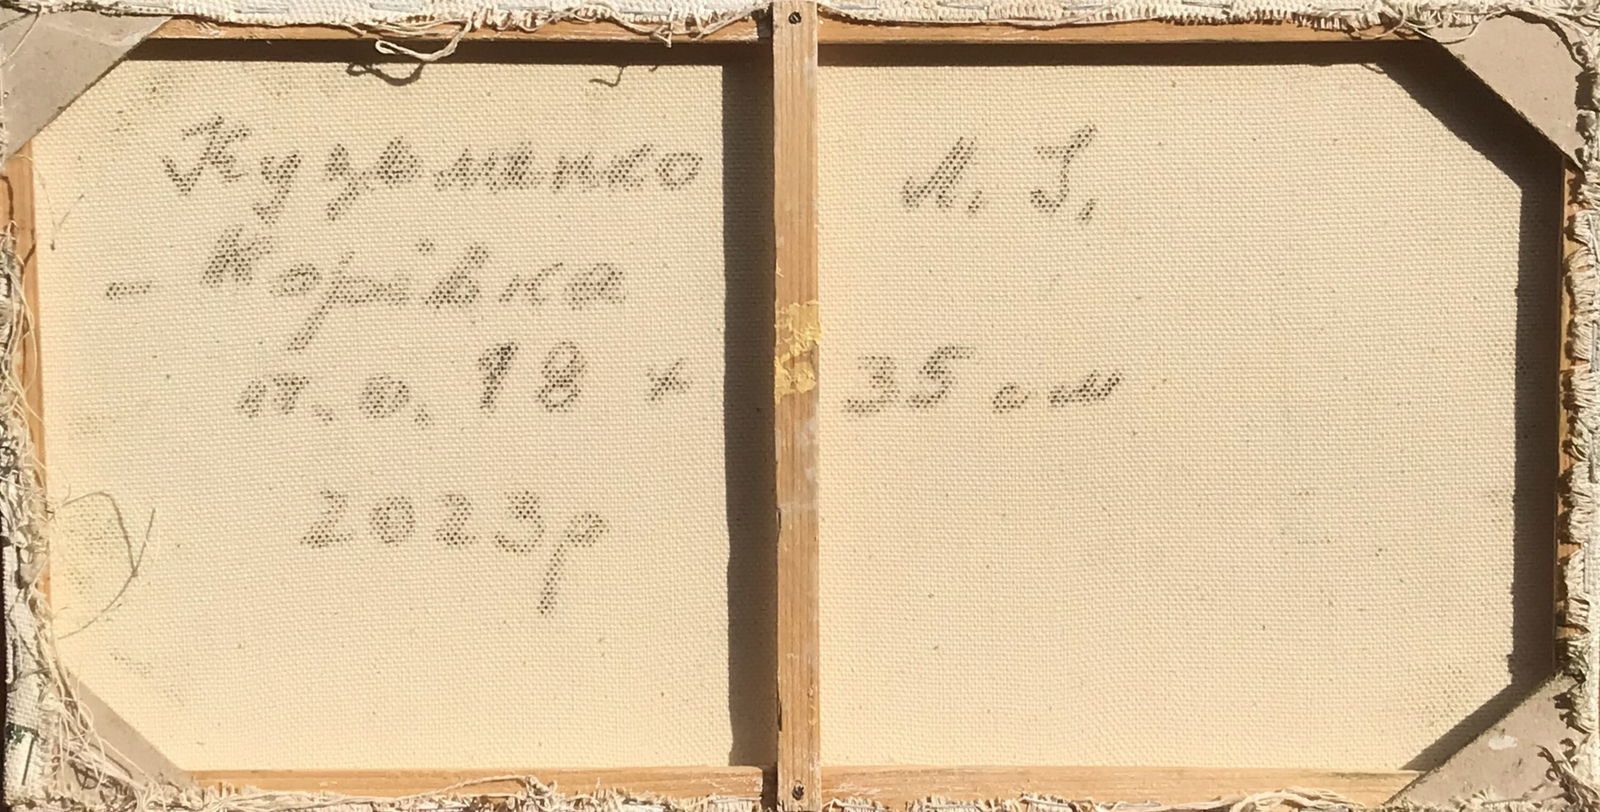 Кузьменко Л. І.
- Корівка
п. о. 18 х 35 см
2023р